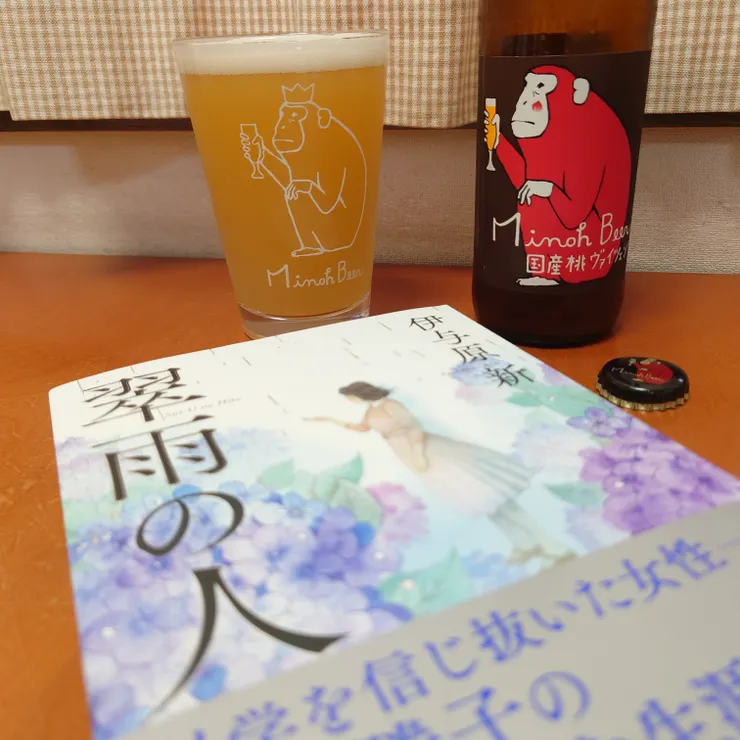 Minoh Beer
Minoh Beer
国産桃ヴァイツェン
Minoh Beer
伊与原 新
翠雨の人
Sui U no Hito
学を信じ抜いた女性
勝子の
生涯